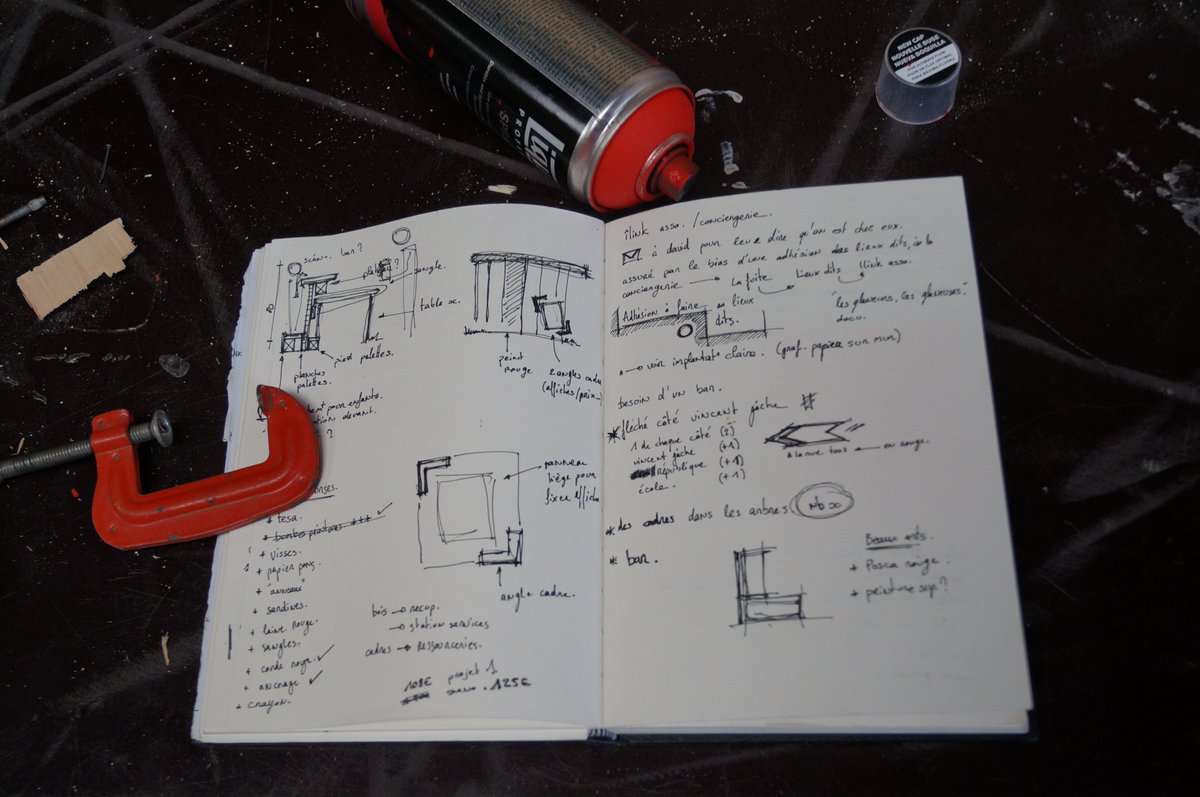 NEW CAP
NOUVELLE BUSE
NUEVA BOQUILLA
PRO
scén. ban ?
sangle.
table
pied palettes.
planches
palettes.
peint
rouge
2 angles cadre
(affiches/prix
pour enfants.
devant.
?
+ tesa.
+ bombes peintures
+ visses.
+ papier
+ "anneaux"
+ sardines.
+ laine rouge.
+ sangles.
+ corde rouge
+ ancrage
+ crayon.
panneau
liège pour
fixer affiche
angle cadre.
bois → recup.
→ station services
cadres → ressourceries.
108€ projet 1
125€
ilink asso. / conciergerie.
à david pour leur dire qu'on est chez eux.
assuré par le biais d'une adhésion des lieux dits,
conciergerie → Lieux dits Ilink asso.
Adhésion à faire
lieux
dits.
"les glaneurs, les glaneuses"
docu.
→ voir claire. (prof. papier sur mur)
besoin d'un ban.
* fléché côté vincent gâche #
1 de chaque côté (2)
vincent gâche (+1)
république (+1)
école. (+1)
en rouge.
* des cadres dans les arbres Nb
* ban.
Beaux arts.
+ Posca rouge.
+ peinture